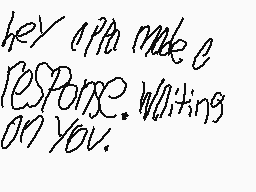 hey appa made a
response. Waiting
on you.